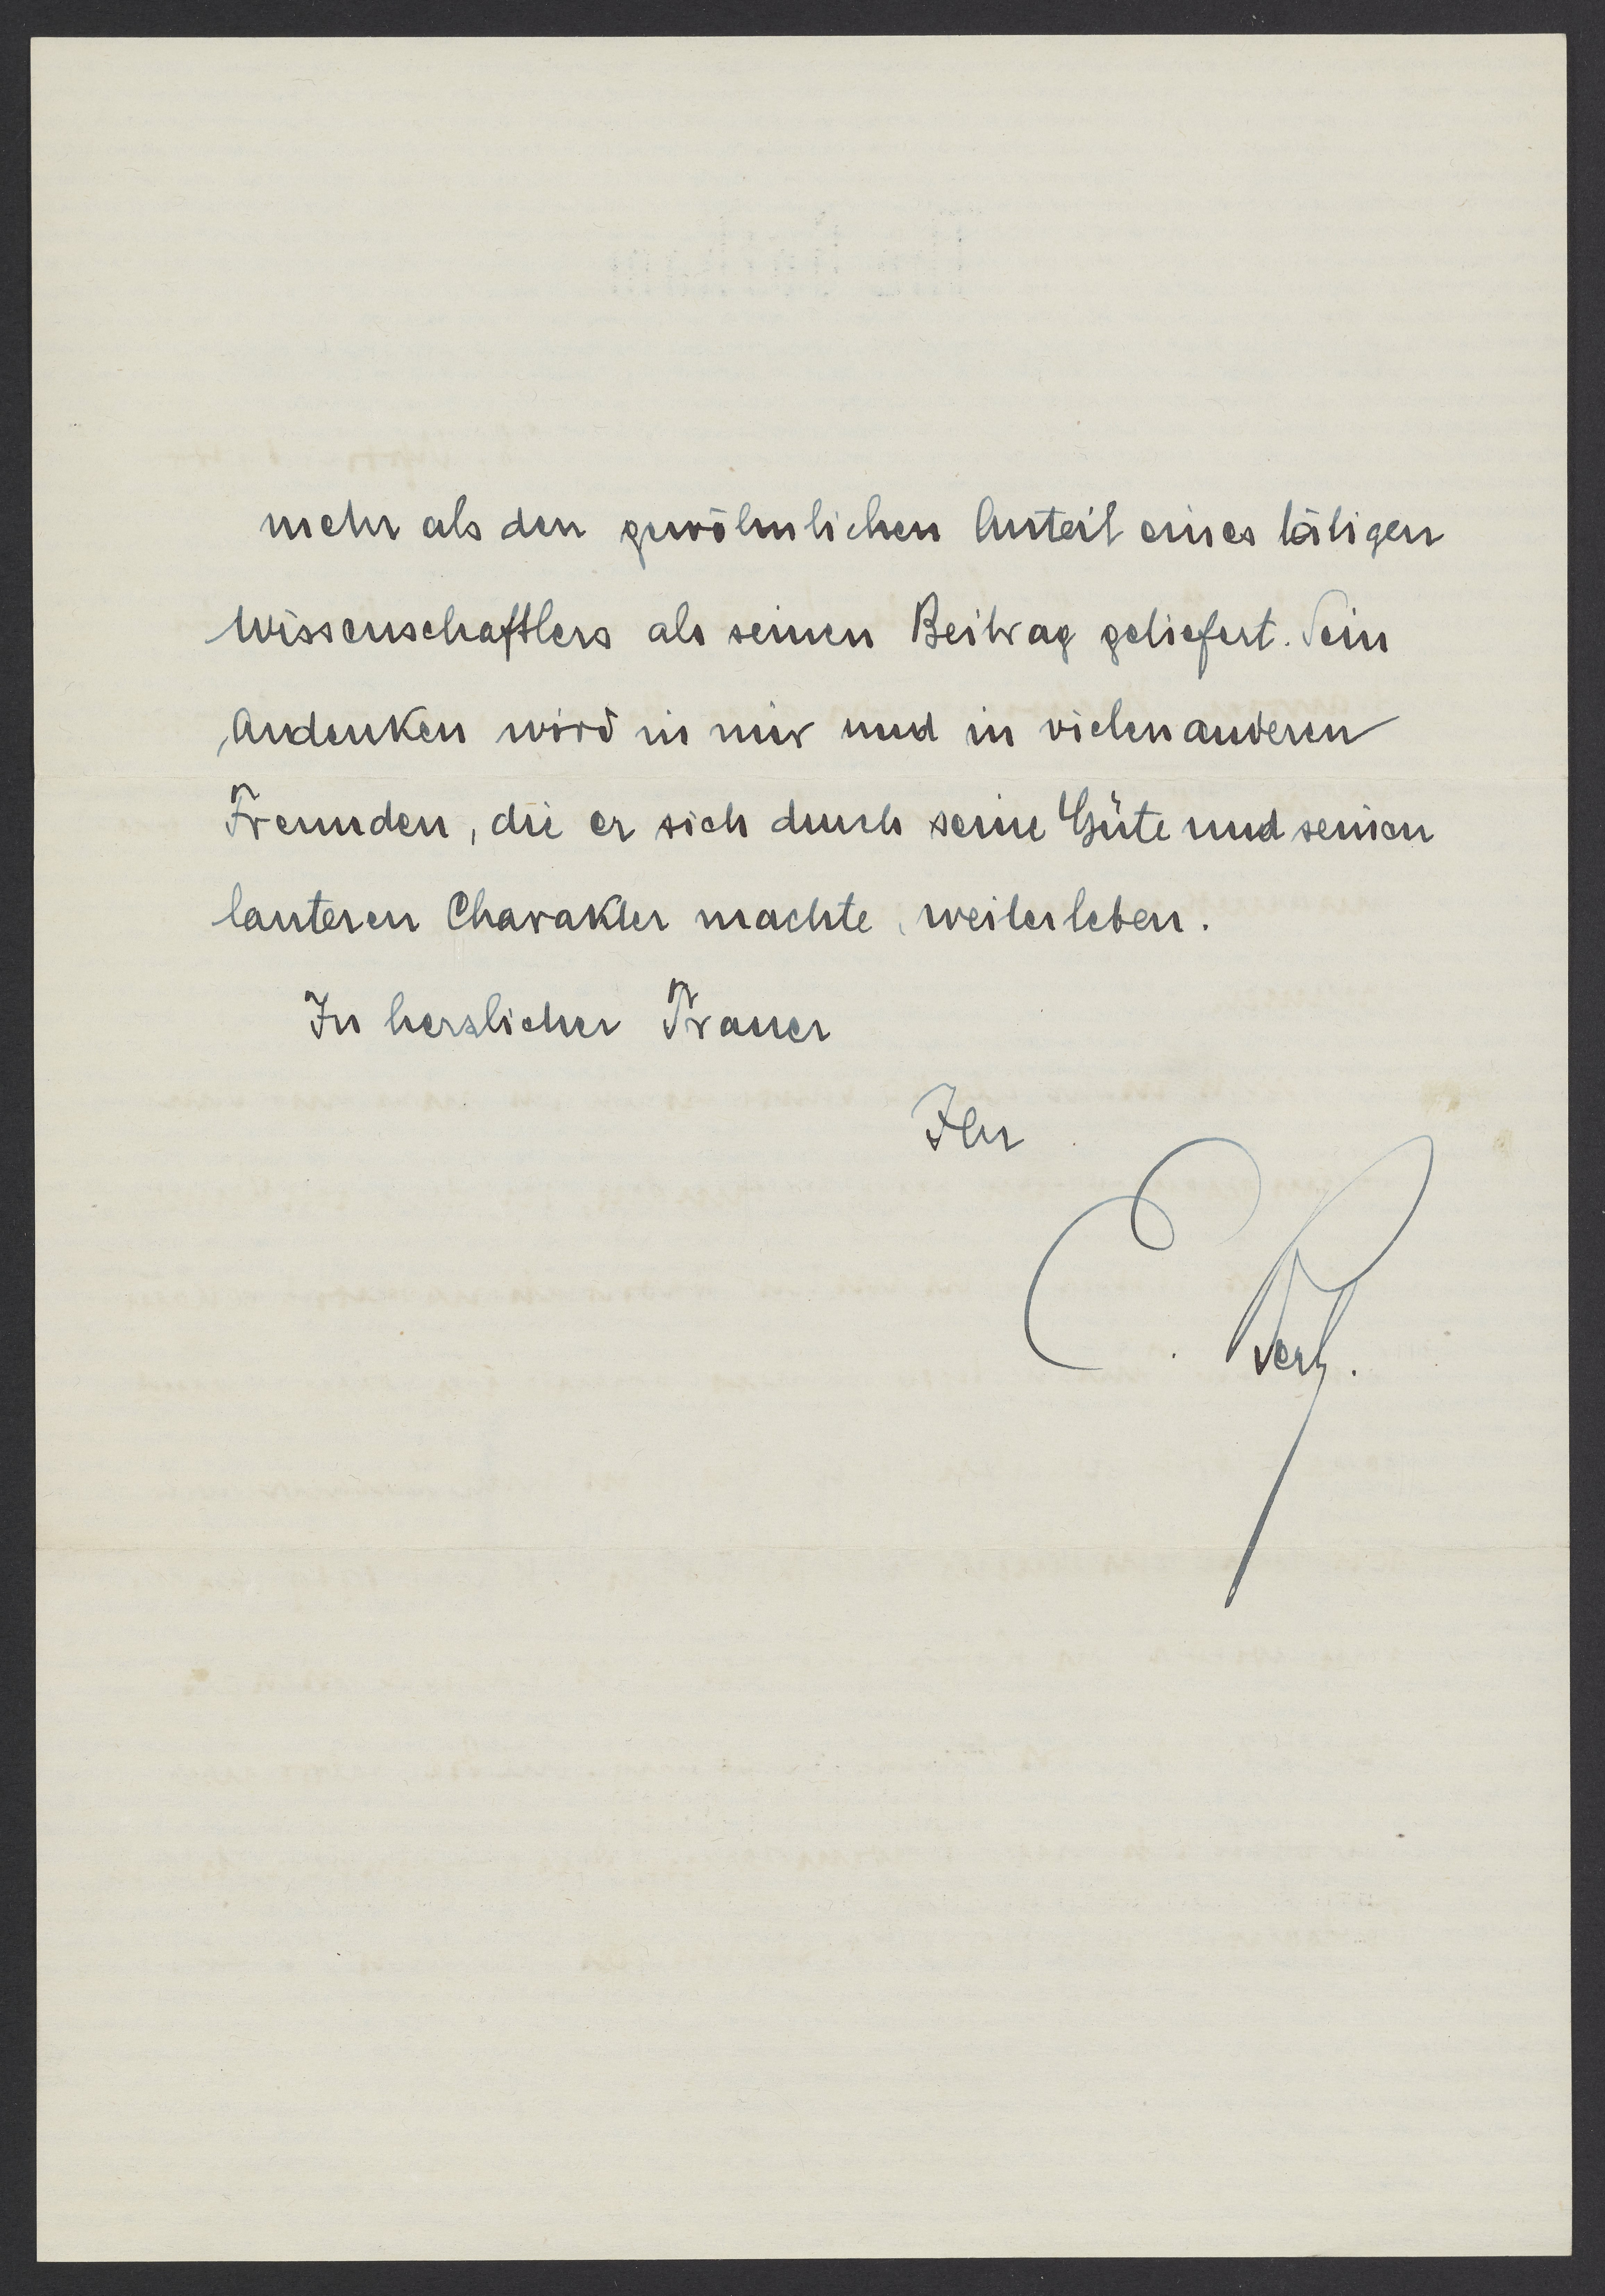 mehr als den gewöhnlichen Anteil eines tätigen
Wissenschaftlers als seinen Beitrag geliefert. Sein
Andenken wird in mir und in vielen anderen
Freunden, die er sich durch seine Güte und seinen
lauteren Charakter machte, weiterleben.
In herzlicher Trauer
Ihr
E.